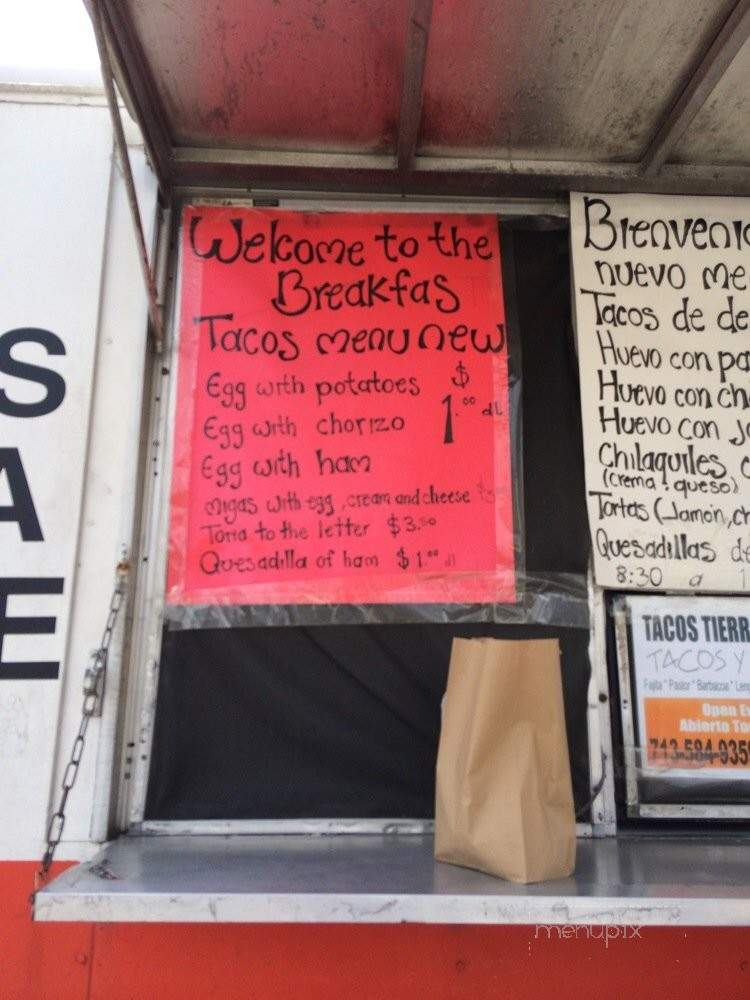 Welcome to the
Breakfas
Tacos menu new
Egg with potatoes $
Egg with chorizo 1.00 dL
Egg with ham
migas with egg, cream and cheese
Torta to the letter $3.50
Quesadilla of ham $1.00 dl
Bienveni
nuevo me
Tacos de de
Huevo con pa
Huevo con ch
Huevo con Ja
Chilaquiles c
(crema, queso)
Tortas (Jamon, ch
Quesadillas de
8:30 a 1
TACOS TIERR
TACOS Y
Fajita * Pastor * Barbacoa * Len
Open Ev
Abierto To
713-584-935
S
A
E
menupix